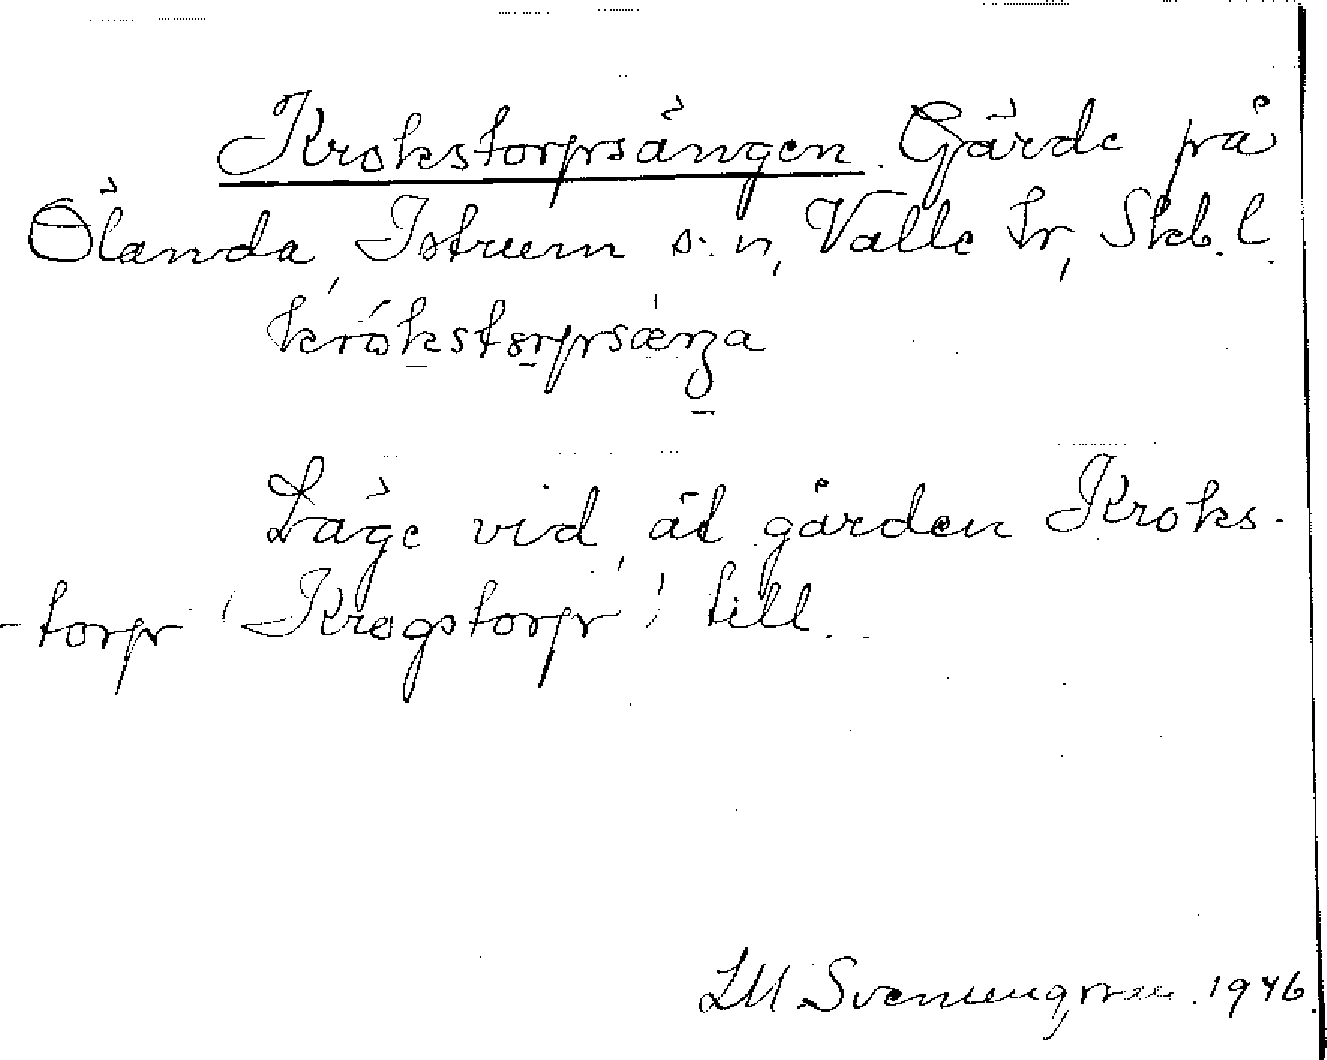 Krokstorpsängen. Gärde på
Ölanda, Istrum s:n, Valle hr, Skb. l.
krókstorpsæŋa
Läge vid, åt gården Kroks-
-torp 'Krogstorp' till.
LM Svenungsson. 1946